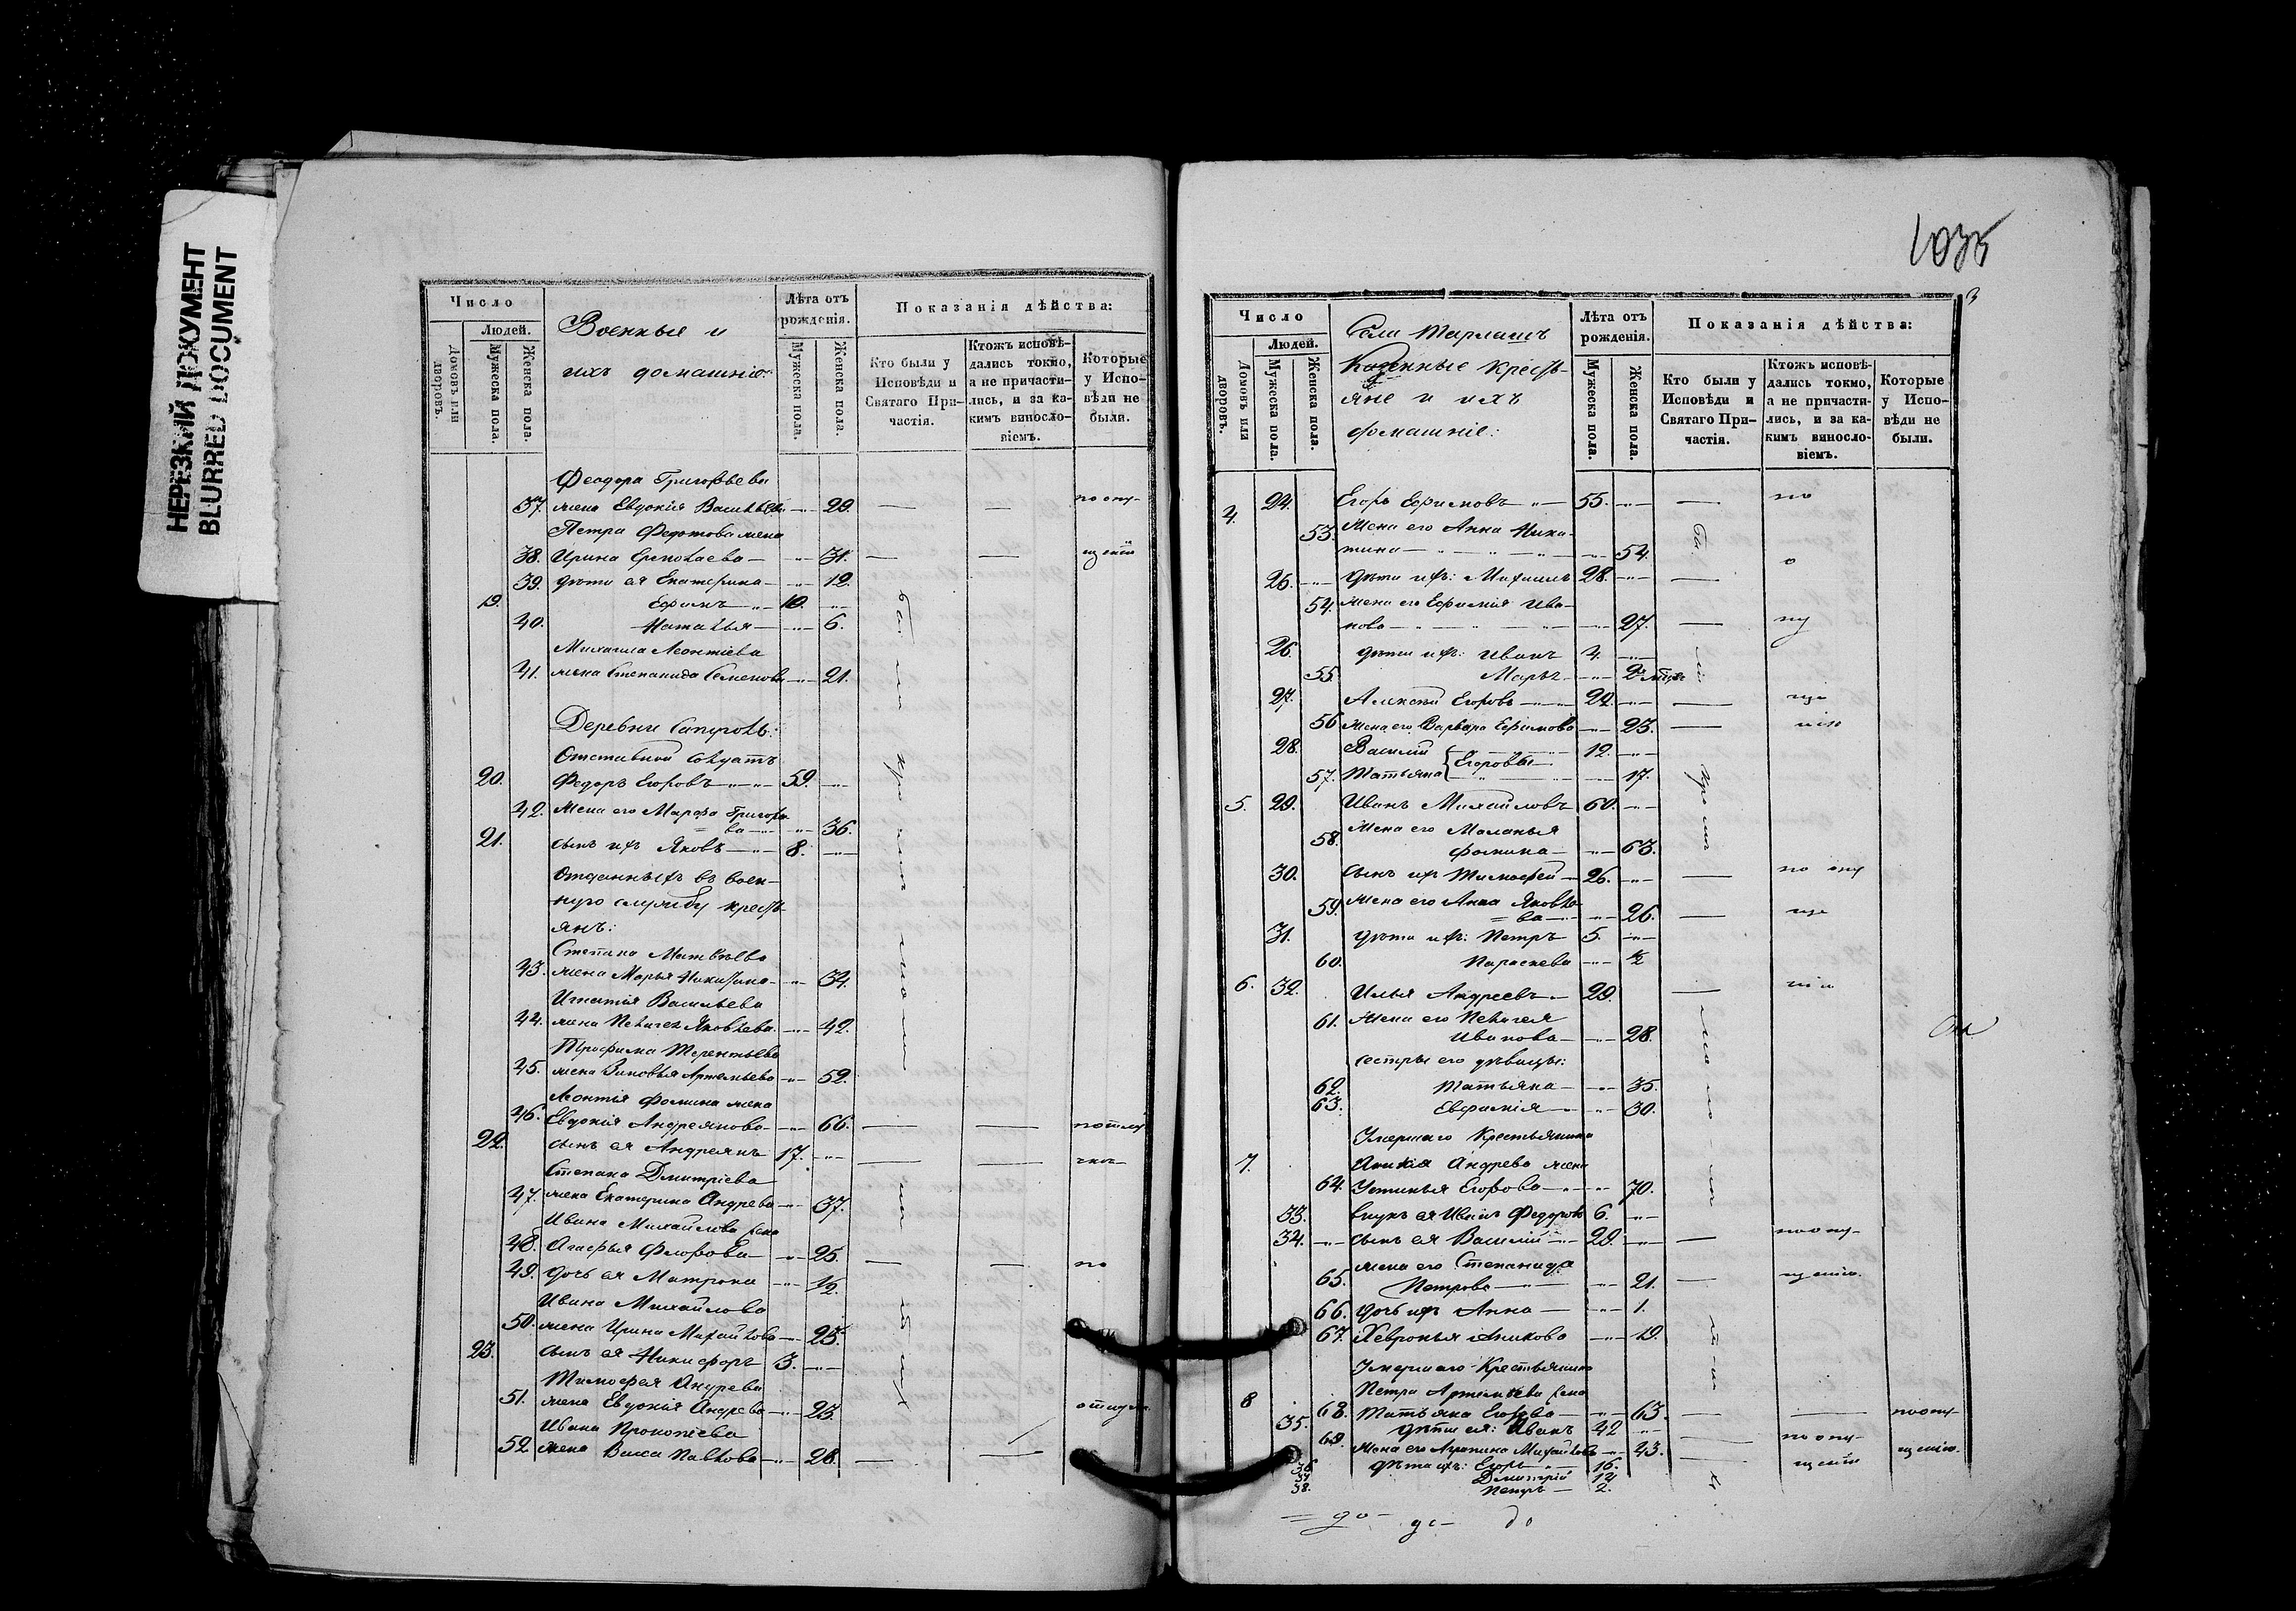 НЕРЕЗКИЙ ДОКУМЕНТ
BLURRED DOCUMENT
Число
Людей.
Домовъ или дворовъ.
Мужеска пола.
Женска пола.
Военные и
ихъ домашніе:
Лѣта отъ рожденія.
Мужеска пола.
Женска пола.
Показанія дѣйства:
Кто были у Исповѣди и Святаго При- частія.
Ктожъ исповѣ- дались токмо, а не причасти- лись, и за ка- кимъ виносло- віемъ.
Которые у Испо- вѣди не были.
Феодора Григорьева
37. жена Евдокія Васильева 29. по опу-
Петра Федотова жена
38. Ирина Ермолаева 31. щенію
39. дѣти ея Екатерина 12.
19. Ефимъ 10.
40. Наталья 6.
Михаила Леонтіева
41. жена Степанида Семенова 21.
Деревни
Отставной Солдатъ
20. Федоръ Егоровъ 59.
42. Жена его Марфа Григорье
ва 36.
21. сынъ ихъ Яковъ 8.
Отданныхъ въ воен-
ную службу кресть-
янъ:
Степана Матвѣева
43. жена Марья Никитина 34.
Игнатія Васильева
44. жена Пелагея Яковлева 42.
Трофима Терентьева
45. жена Зиновья Артемьева 52.
Леонтія Фомина жена
46. Евдокія Андреянова 66.
22. сынъ ея Андреянъ 17.
Степана Дмитріева
47. жена Екатерина Андрева 37.
Ивана Михайлова жена
48. Агафья Флорова 25. по
49. дочь ея Матрона 1/2
Ивана Михайлова
50. жена Ирина Михайлова 25.
23. сынъ ея Никифоръ 3.
Тимофея Андрева
51. жена Евдокія Андрева 23.
Ивана Прокопіева
52. жена Васса Павлова 26.
1035
3
Число
Людей.
Домовъ или дворовъ.
Мужеска пола.
Женска пола.
Села Тарлашъ
Казенные кресть-
яне и ихъ
домашніе:
Лѣта отъ рожденія.
Мужеска пола.
Женска пола.
Показанія дѣйства:
Кто были у Исповѣди и Святаго При- частія.
Ктожъ исповѣ- дались токмо, а не причасти- лись, и за ка- кимъ виносло- віемъ.
Которые у Испо- вѣди не были.
4. 24. Егоръ Ефимовъ 55. по
53. Жена его Анна Ники-
тина 54. о
25. дѣти ихъ: Михаилъ 28.
54. жена его Ефимія Ива-
нова 27. пу
26. дѣти ихъ: Иванъ 4.
55. Марья
27. Алексѣй Егоровъ 22. ще
56 Жена его Варвара Ефимова 23. нію
28. Василій 12.
Егоровы
57. Татьяна 17.
5. 29. Иванъ Михайловъ 60.
58. Жена его Маланья
Фомина 63.
30. сынъ ихъ Тимофей 26. по опу
59. жена его Анна Яковле
ва 26. ще
31. дѣти ихъ: Петръ 5.
60. Параскева 1/2
6. 32. Илья Андреевъ 29. нію
61. Жена его Пелагея
Иванова 28.
сестры его дѣвицы:
62. Татьяна 35.
63. Евфимія 30.
Умершаго Крестьянина
7. Аникія Андрева жена
64. Устинья Егорова 70.
33. внукъ ея Иванъ Федоровъ 6.
34. сынъ ея Василій 29. по опу-
65. жена его Степанида
Петрова 21. щенію.
66. дочь ихъ Анна 1.
67. Хевронья Аникова 19.
Умершаго Крестьянина
8 Петра Артемьева жена
68. Татьяна Егорова 63. по опу-
35. дѣти ея: Иванъ 42 по опу-
69. жена его Агрипина Михайлова 43. щенію щенію.
36 дѣти ихъ: Егоръ 16.
37 Дмитрій 12
38. Петръ 2.